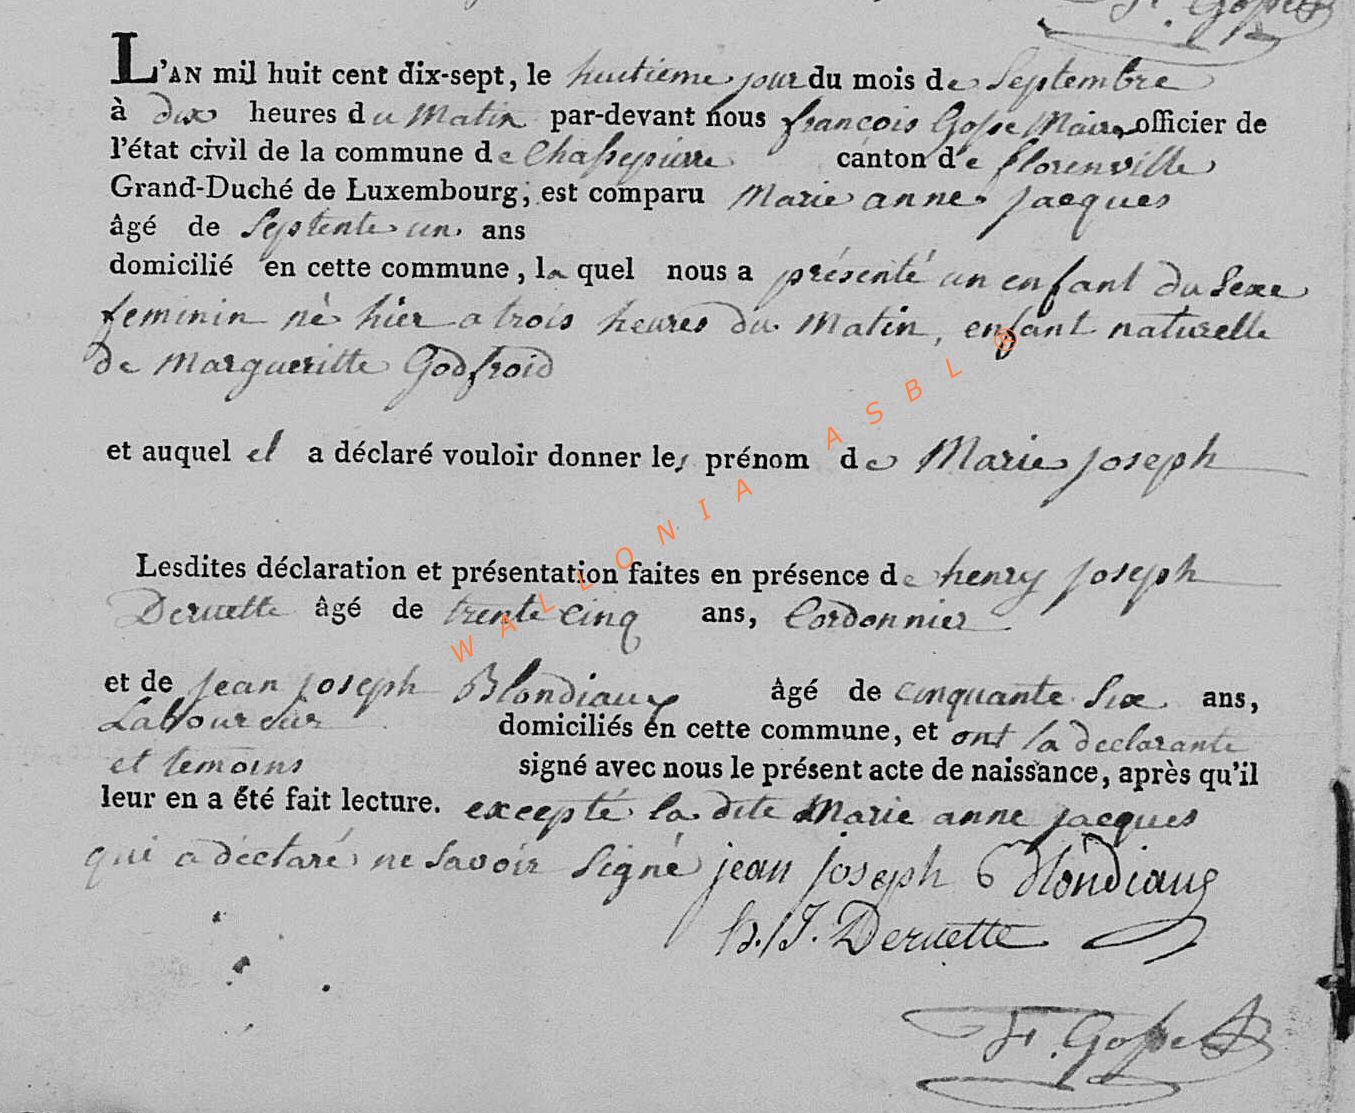 F. Gosse
L'AN mil huit cent dix-sept, le huitieme jour du mois de Septembre
à dix heures du Matin par-devant nous françois Gosse Maire officier de
l'état civil de la commune de Chassepierre canton de florenville
Grand-Duché de Luxembourg, est comparu Marie anne jacques
âgé de Septente un ans
domicilié en cette commune, la quel nous a présenté un enfant du Sexe
feminin né hier a trois heures du Matin, enfant naturelle
de Margueritte Godfroid
et auquel el a déclaré vouloir donner les prénom de Marie joseph
Lesdites déclaration et présentation faites en présence de henry joseph
Deruette âgé de trente cinq ans, Cordonnier
et de jean joseph Blondiaux âgé de cinquante Six ans,
Laboureur domiciliés en cette commune, et ont la declarante
et temoins signé avec nous le présent acte de naissance, après qu'il
leur en a été fait lecture. excepté la dite Marie anne jacques
qui a déclaré ne Savoir Signé jean joseph Blondiaux
h. J. Deruette
F. Gosse
WALLONIA ASBL ®